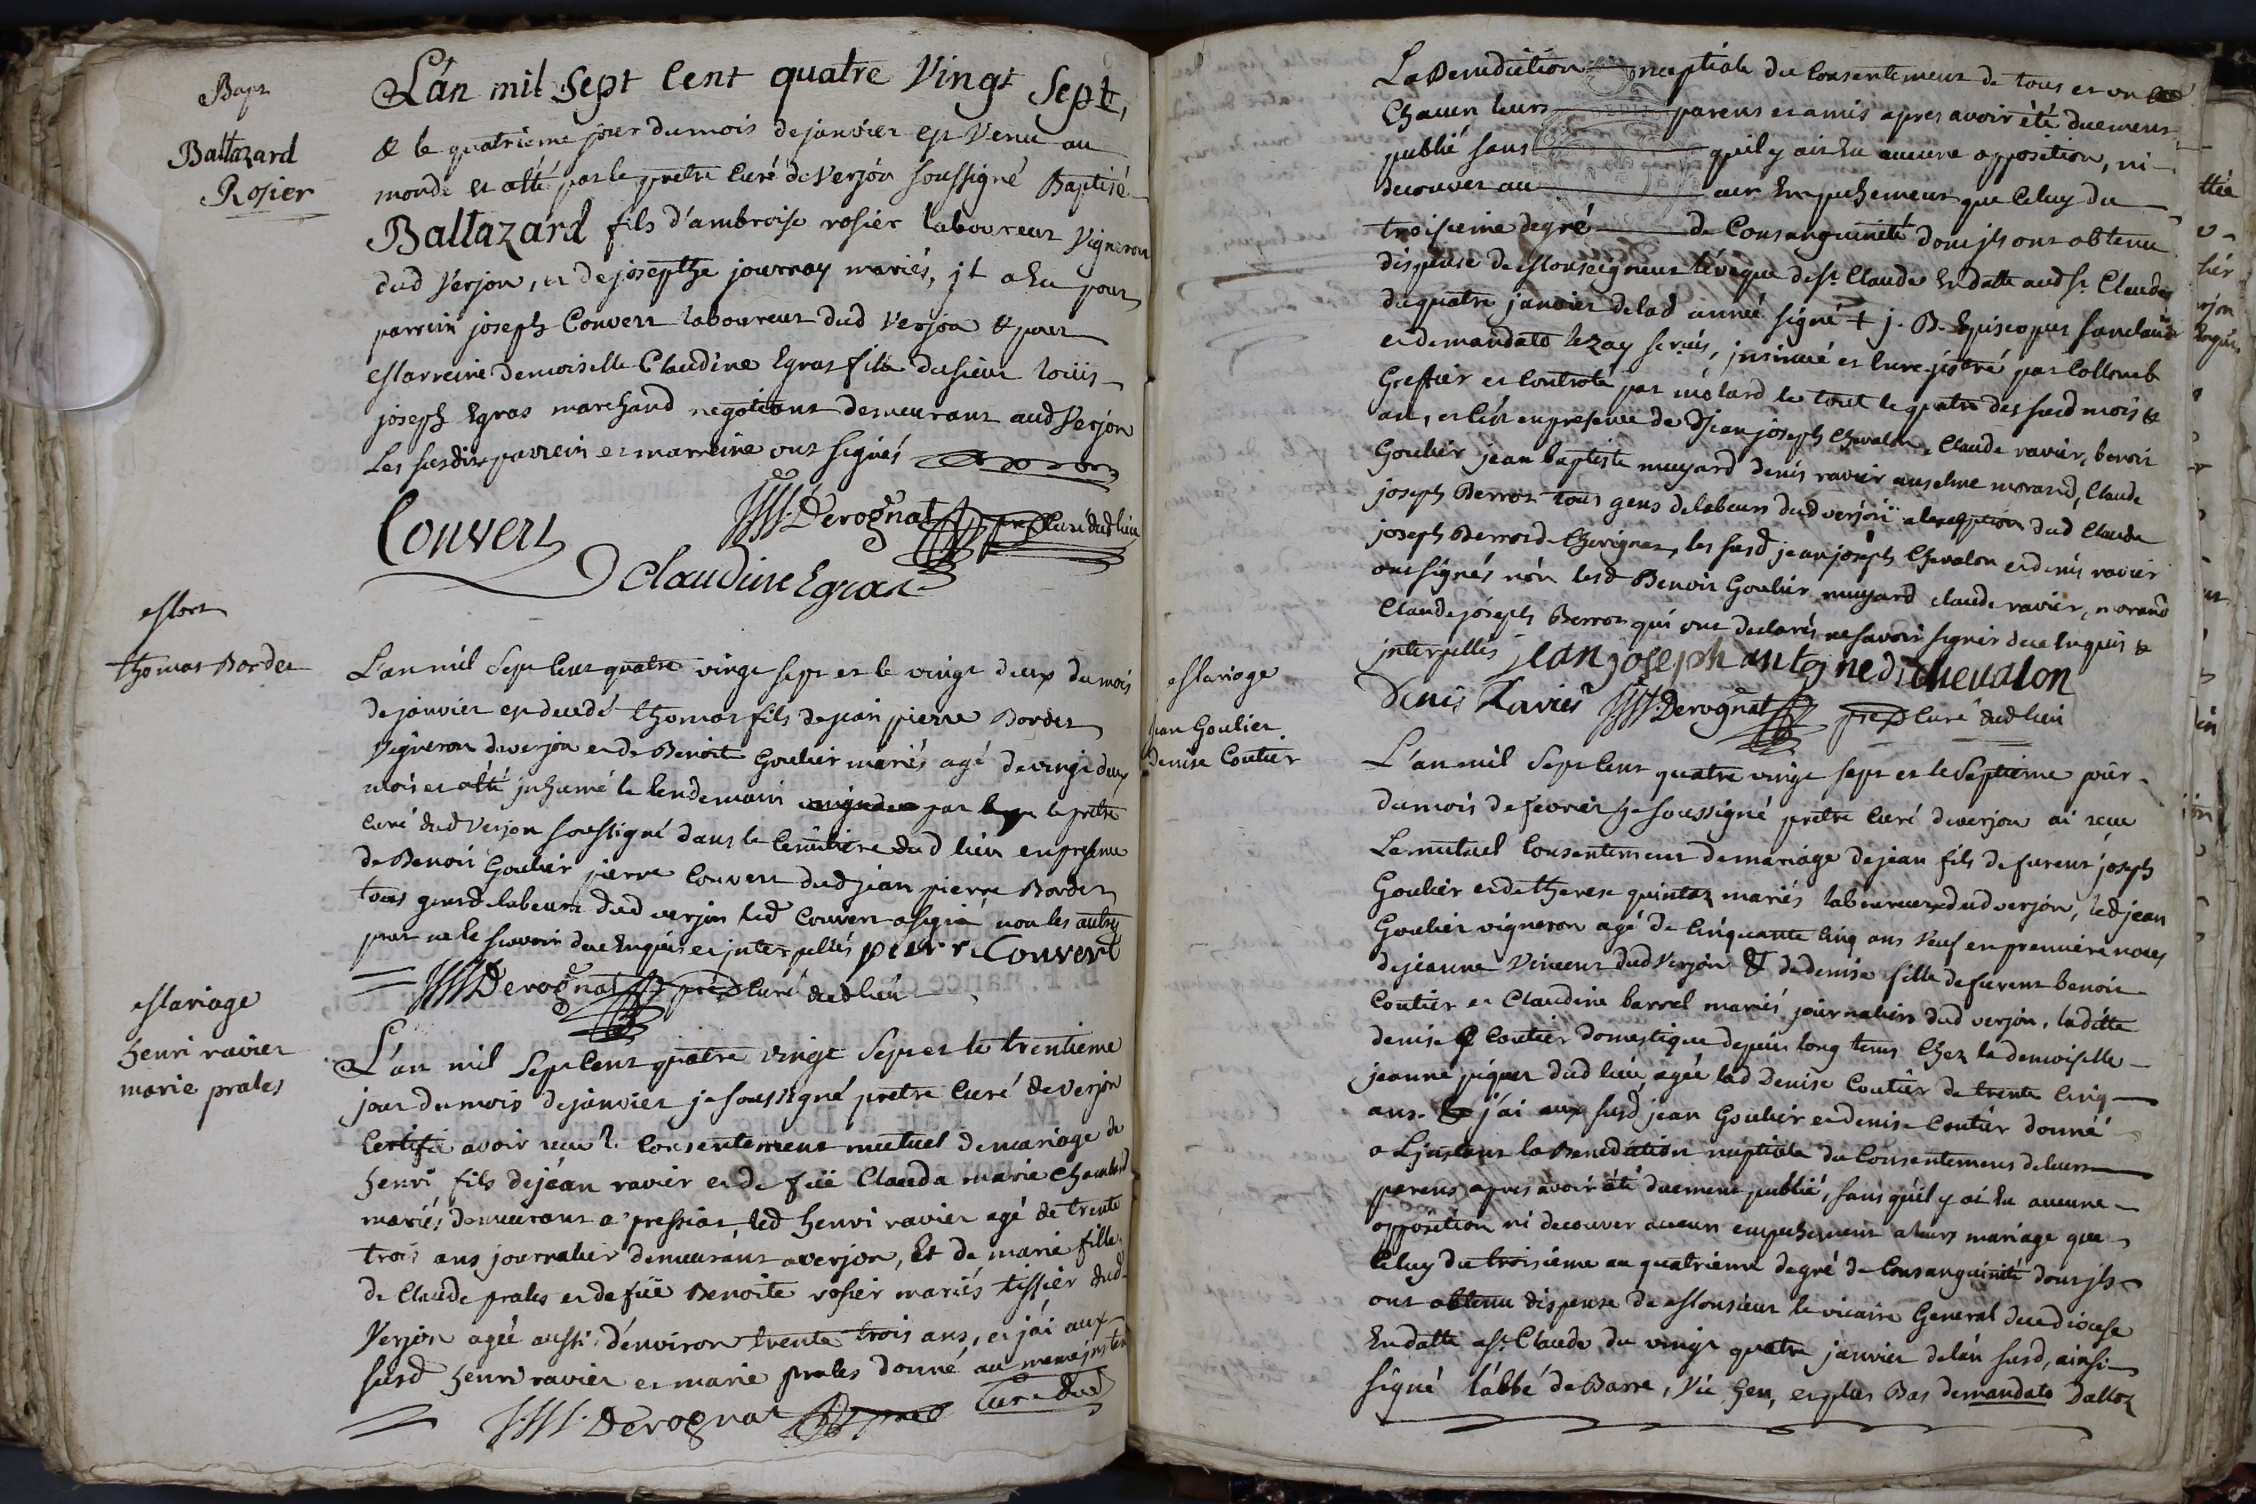 Bapt
Baltazard
Rosier
L'an mil Sept Cent quatre Vingt Sept,
& le quatrieme jour du mois de janvier est Venu au
monde et a été par le pretre Curé de Verjon soussigné Baptisé
Baltazard fils d'ambroise rosier laboureur Vigneron
dud Verjon, et de josepthe journay mariés, jl a Eu pour
parrein joseph Convert laboureur dud Verjon & pour
Marreine demoiselle Claudine Egras fille du sieur loüis
joseph Egras marchand negotiant demeurant aud Verjon
Les susdits parrein et marreine ont signés
Convert
Derognat ptre Curé dud lieu
Claudine Egras
Mort
thomas Bordet
L'an mil Sept Cent quatre vingt sept et le vingt deux du mois
de janvier est decedé thomas fils de jean pierre Bordet
Vigneron de verjon et de Benoite Goulier mariés agé de vingt deux
mois et a été jnhumé le lendemain par le pretre
Curé dud Verjon soussigné dans le Cemitiere dud lieu en presence
de Benoit Goulier pierre Convert dud jean pierre Bordet
tous gens de labeurs dud verjon led Convert a signé non les autres
pour ne le scavoir de ce Enquis et jnterpellés pierre Convert
Derognat ptre Curé dud lieu
Mariage
henri ravier
marie prales
L'an mil Sept Cent quatre vingt Sept et le trentieme
jour du mois de janvier je soussigné pretre Curé de Verjon
Certifie avoir recu le Consentement mutuel de mariage de
henri fils de jéan ravier et de füe Clauda marie Chambard
mariés demeurant a pressiat led henri ravier agé de trente
trois ans journalier demeurant a verjon, Et de marie fille
de Claude prales et de füe Benoite rosier mariés tissier dud
Verjon agée aussi d'environ trente trois ans, et j'ai aux
susd henri ravier et marie prales donné au meme jnstant
Derognat ptre Curé dud
La Benediction nuptiale du Consentement de tous et un
Chacun leurs parens et amis apres avoir été duement
publié sans qu'il y ait Eu aucune opposition, ni
decouver au cun Empechement que Celuy du
troisieme degré de Consanguinité dont jls ont obtenu
dispense de Monseigneur l'évêque de St Claude En datte aud St Claude
du quatre janvier de lad année signé + j. B. Episcopus
et de mandato, jnsinué et par Collomb
Greffier et Controlé par molard le tout le quatre des susd mois &
an, et C'est en presence de jean joseph Chevalon, Claude ravier, benoit
Goulier jean baptiste muyard denis ravier anselme morand, Claude
joseph Berrod tous gens de labeurs dud verjon a l'exception dud Claude
joseph Berrod de, les susd jean joseph Chevalon et denis ravier
ont signés nón lesd Benoit Goulier muyard claude ravier, morand
Claude joseph Berrod qui ont declarés ne savoir signer de ce Enquis &
jnterpellés jean joseph antoine d Chevalon
Denis Ravier Derognat ptre Curé dud lieu
Mariage
jean Goulier
denise Coutier
L'an mil Sept Cent quatre vingt sept et le Septieme jour
du mois de fevrier je soussigné pretre Curé de verjon ai recu
Le mutuel Consentement de mariage de jean fils de furent joseph
Goulier et de therese quintaz mariés laboureur dud verjon, led jean
Goulier vigneron agé de Cinquante Cinq ans Veuf en premiere noces
de jeanne Vincent dud Verjon & de denise fille de furent benoit
Coutier et Claudine barrel mariés journaliers dud verjon, laditte
denise Coutier domestique depuis long tems Chez la demoiselle
jeanne piquet dud lieu, agée lad Denise Coutier de trente Cinq
ans. j'ai aux susd jean Goulier et denise Coutier donné
a L'jnstant la Benediction nuptiale du Consentement de leurs
parens apres avoir été duement publié, sans qu'il y ai Eu aucune
opposition ni decouver aucun empechement a leurs mariage que
Celuy du troisieme au quatrieme degré de Consanguinité dont jls
ont obtenu dispense de Monsieur le vicaire General du diocese
En datte a St Claude du vingt quatre janvier de l'an susd, ainsi
signé l'abbé de Barre, Vic Gen, et plus Bas de mandato Dalloz